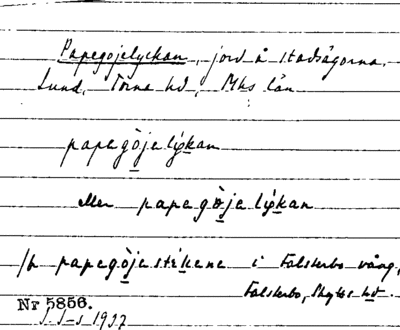 Papegojelyckan, jord å stadsägorna,
Lund, Torna hd, Mhs län
papegòjelýkan
eller papegòjelýkan
/h papegòjestýkene i Falsterbo vång,
Falsterbo, Skytts hd.
Nr 5856.
1937